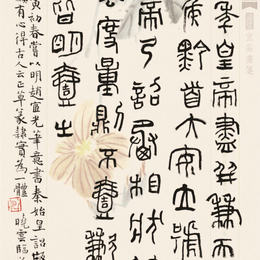 年皇帝盡并兼天
侯黔首大安立號
帝乃詔丞相狀
法度量則不壹歉
皆明壹之
寅初春嘗以明趙宧光筆意書秦始皇詔
有心得古人云正草篆隸實為一體 曉雲臨